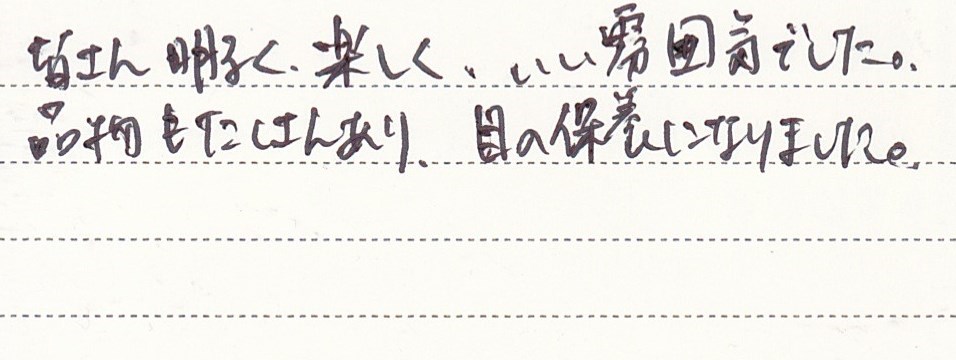 皆さん明るく、楽しく、いい雰囲気でした。
品物もたくさんあり、目の保養になりました。